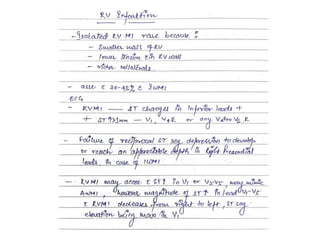 RV Infarction
- Isolated RV MI rare because :
- Smaller mass of RV
- lower tension in RV wall
- richer collaterals.
- assc c̄ 20-45% c̄ IWMI
ECG
- RVMI — ST changes in inferior leads +
+ ST↑>1mm — V1, V4R or any V3 to V6 R
- Failure of reciprocal ST seg depression to develop
or reach an appreciable depth in right precordial
leads in case of IWMI
- RVMI may assoc c̄ ST↑ in V1 or V2-V5, may mimic
AWMI, however magnitude of ST↑ in lead V1-V5
c̄ RVMI decreases from right to left, ST seg
elevation being max in V1